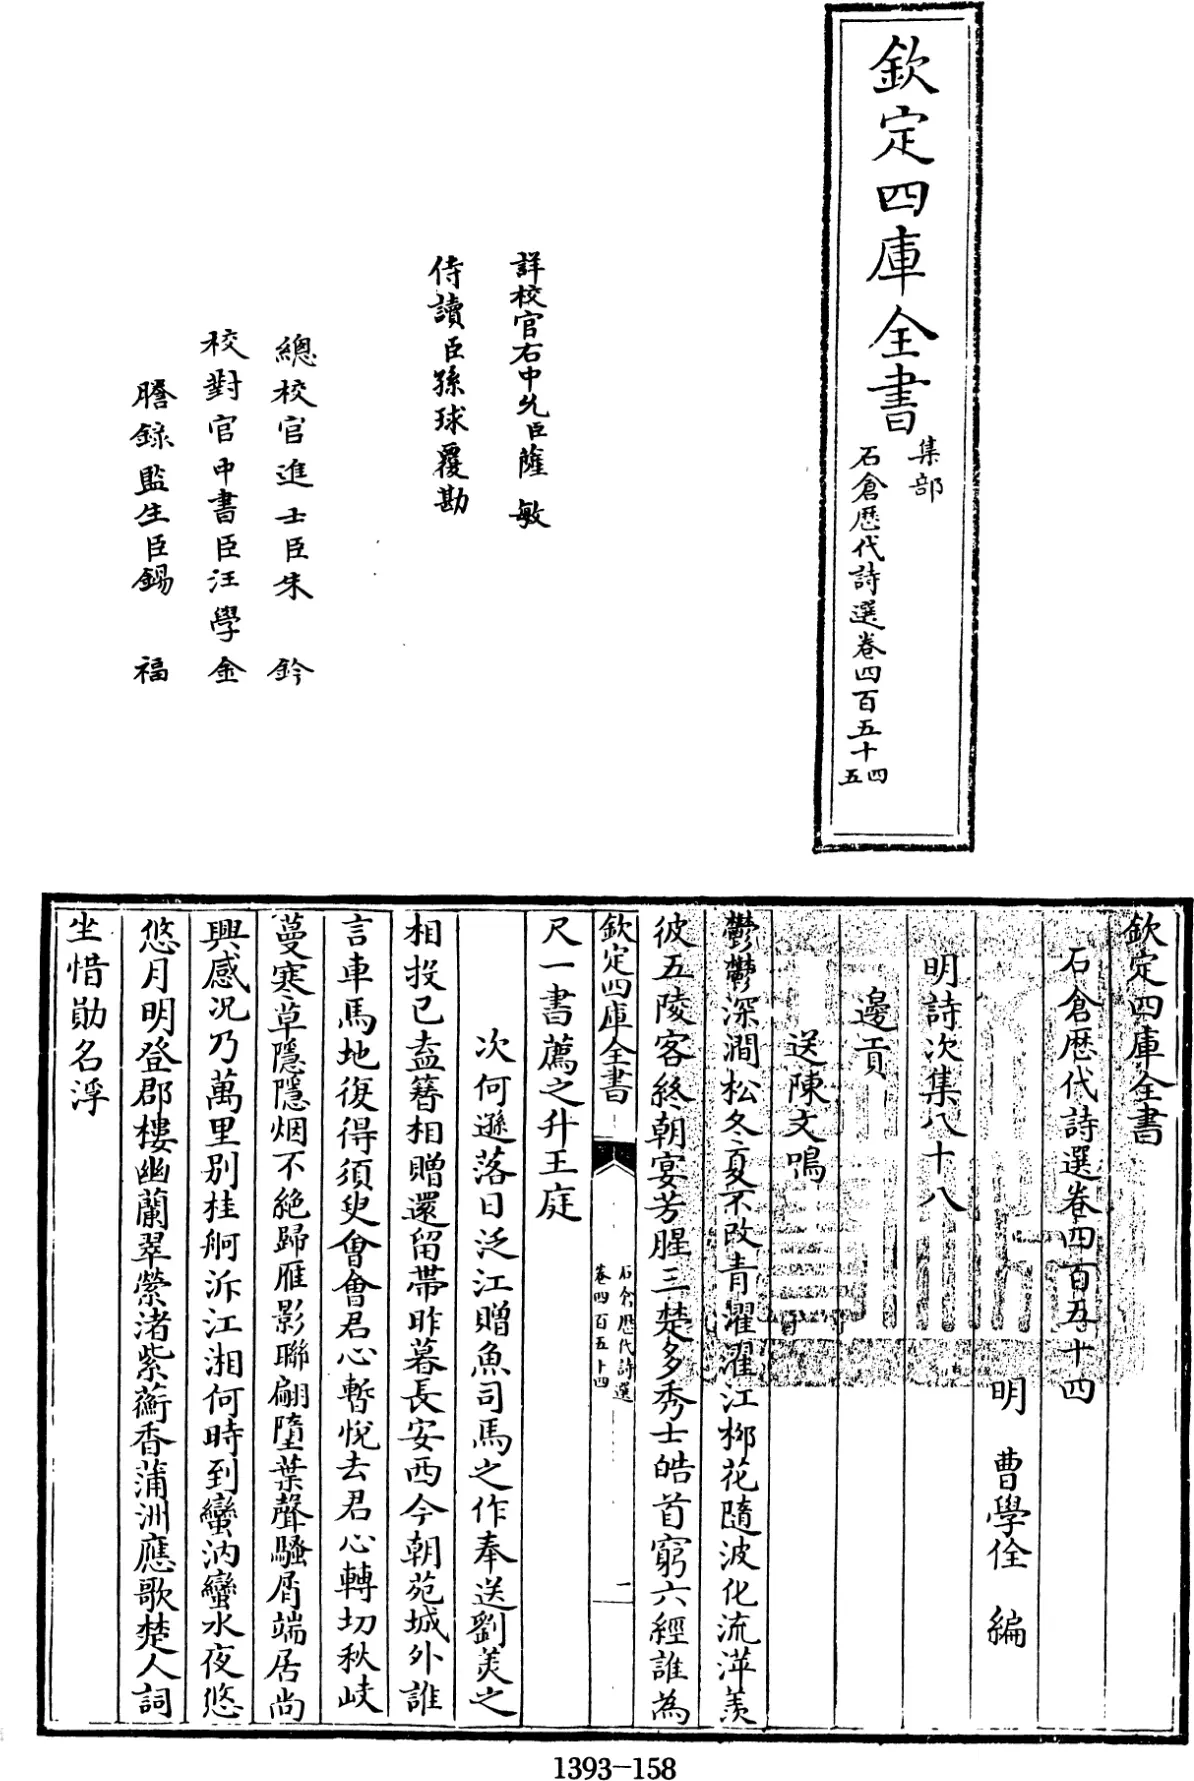 欽定四庫全書
集部
石倉歴代詩選卷四百五十四
五
詳校官右中允臣薩敏
侍讀臣孫球覆勘
總校官進士臣朱鈐
校對官中書臣汪學金
謄錄監生臣錫福
欽定四庫全書
石倉歴代詩選卷四百五十四
明 曹學佺 編
明詩次集八十八
邊貢
送陳文鳴
鬱鬱深澗松冬夏不改青濯濯江栁花隨波化流萍羡
彼五陵客終朝宴芳腥三楚多秀士皓首窮六經誰為
欽定四庫全書
石倉歴代詩選
卷四百五十四
一
尺一書薦之升王庭
次何遜落日泛江贈魚司馬之作奉送劉羙之
相投已盍簪相贈還留帶昨暮長安西今朝苑城外誰
言車馬地復得須臾會會君心暫悅去君心轉切秋岐
蔓寒草隱隱烟不絶歸雁影聯翩墮葉聲騷屑端居尚
興感況乃萬里别桂舸泝江湘何時到蠻汭蠻水夜悠
悠月明登郡樓幽蘭翠縈渚紫蘅香蒲洲應歌楚人詞
坐惜勛名浮
1393-158